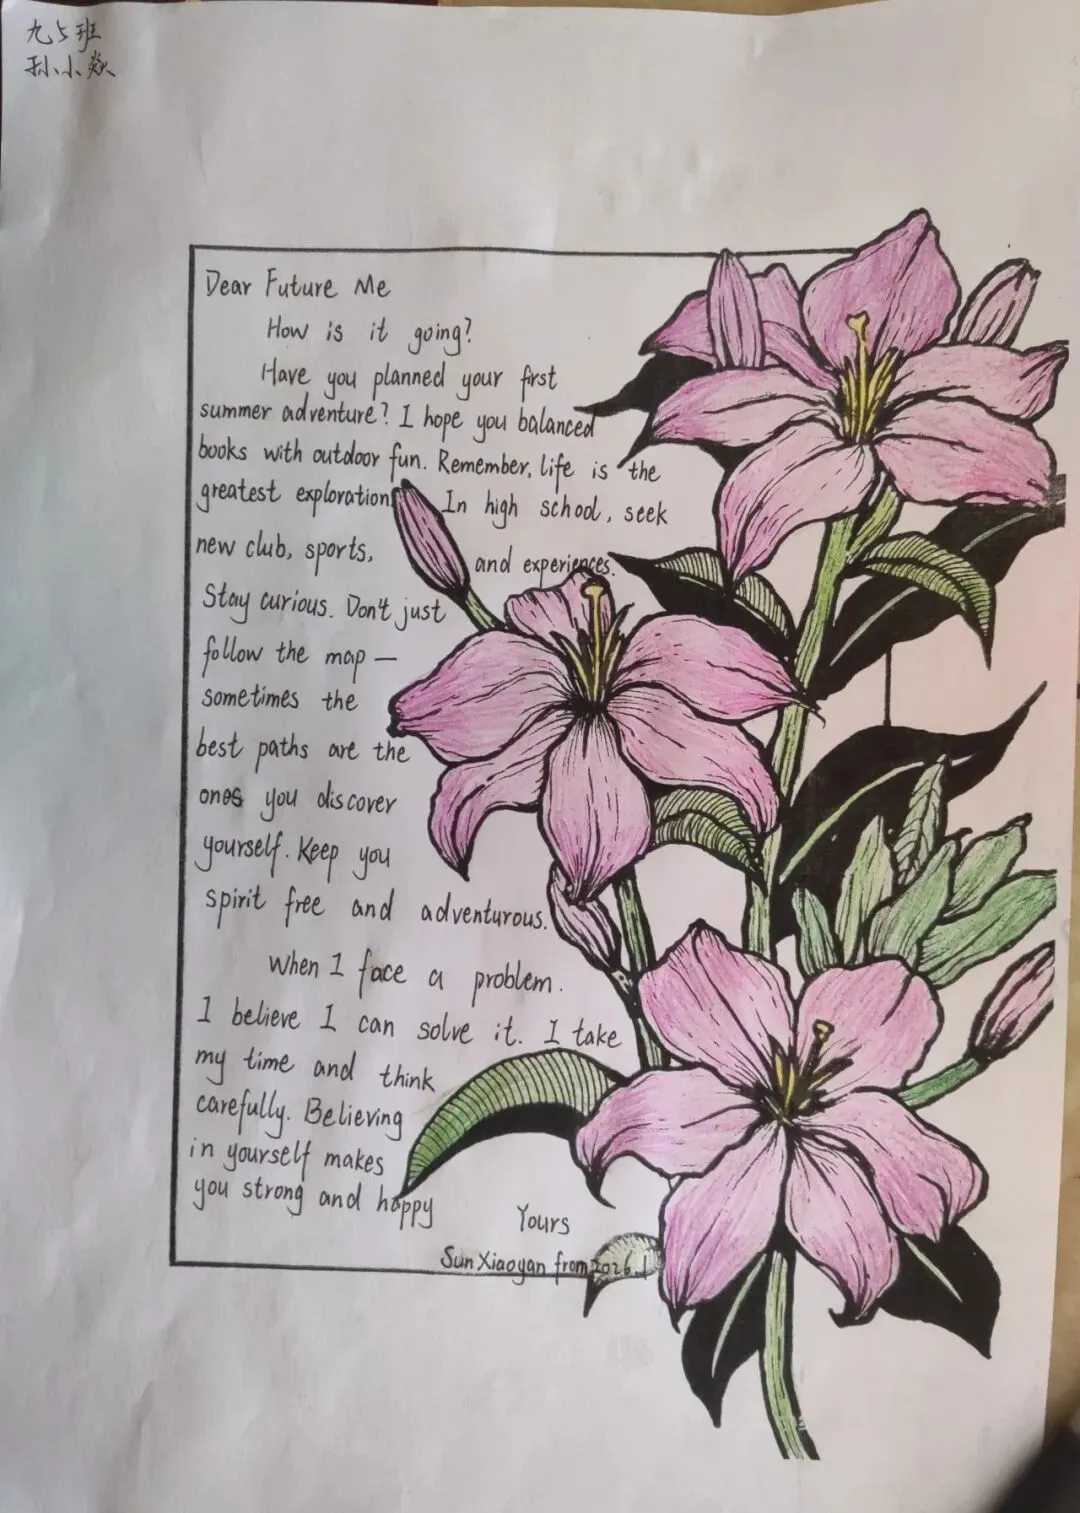 九5班
孙小焱
Dear Future Me
How is it going?
Have you planned your first
summer adventure? I hope you balanced
books with outdoor fun. Remember, life is the
greatest exploration. In high school, seek
new club, sports, and experiences.
Stay curious. Don't just
follow the map —
sometimes the
best paths are the
ones you discover
yourself. Keep you
spirit free and adventurous.
When I face a problem.
I believe I can solve it. I take
my time and think
carefully. Believing
in yourself makes
you strong and happy
Yours
Sun Xiaoyan from 2026.1